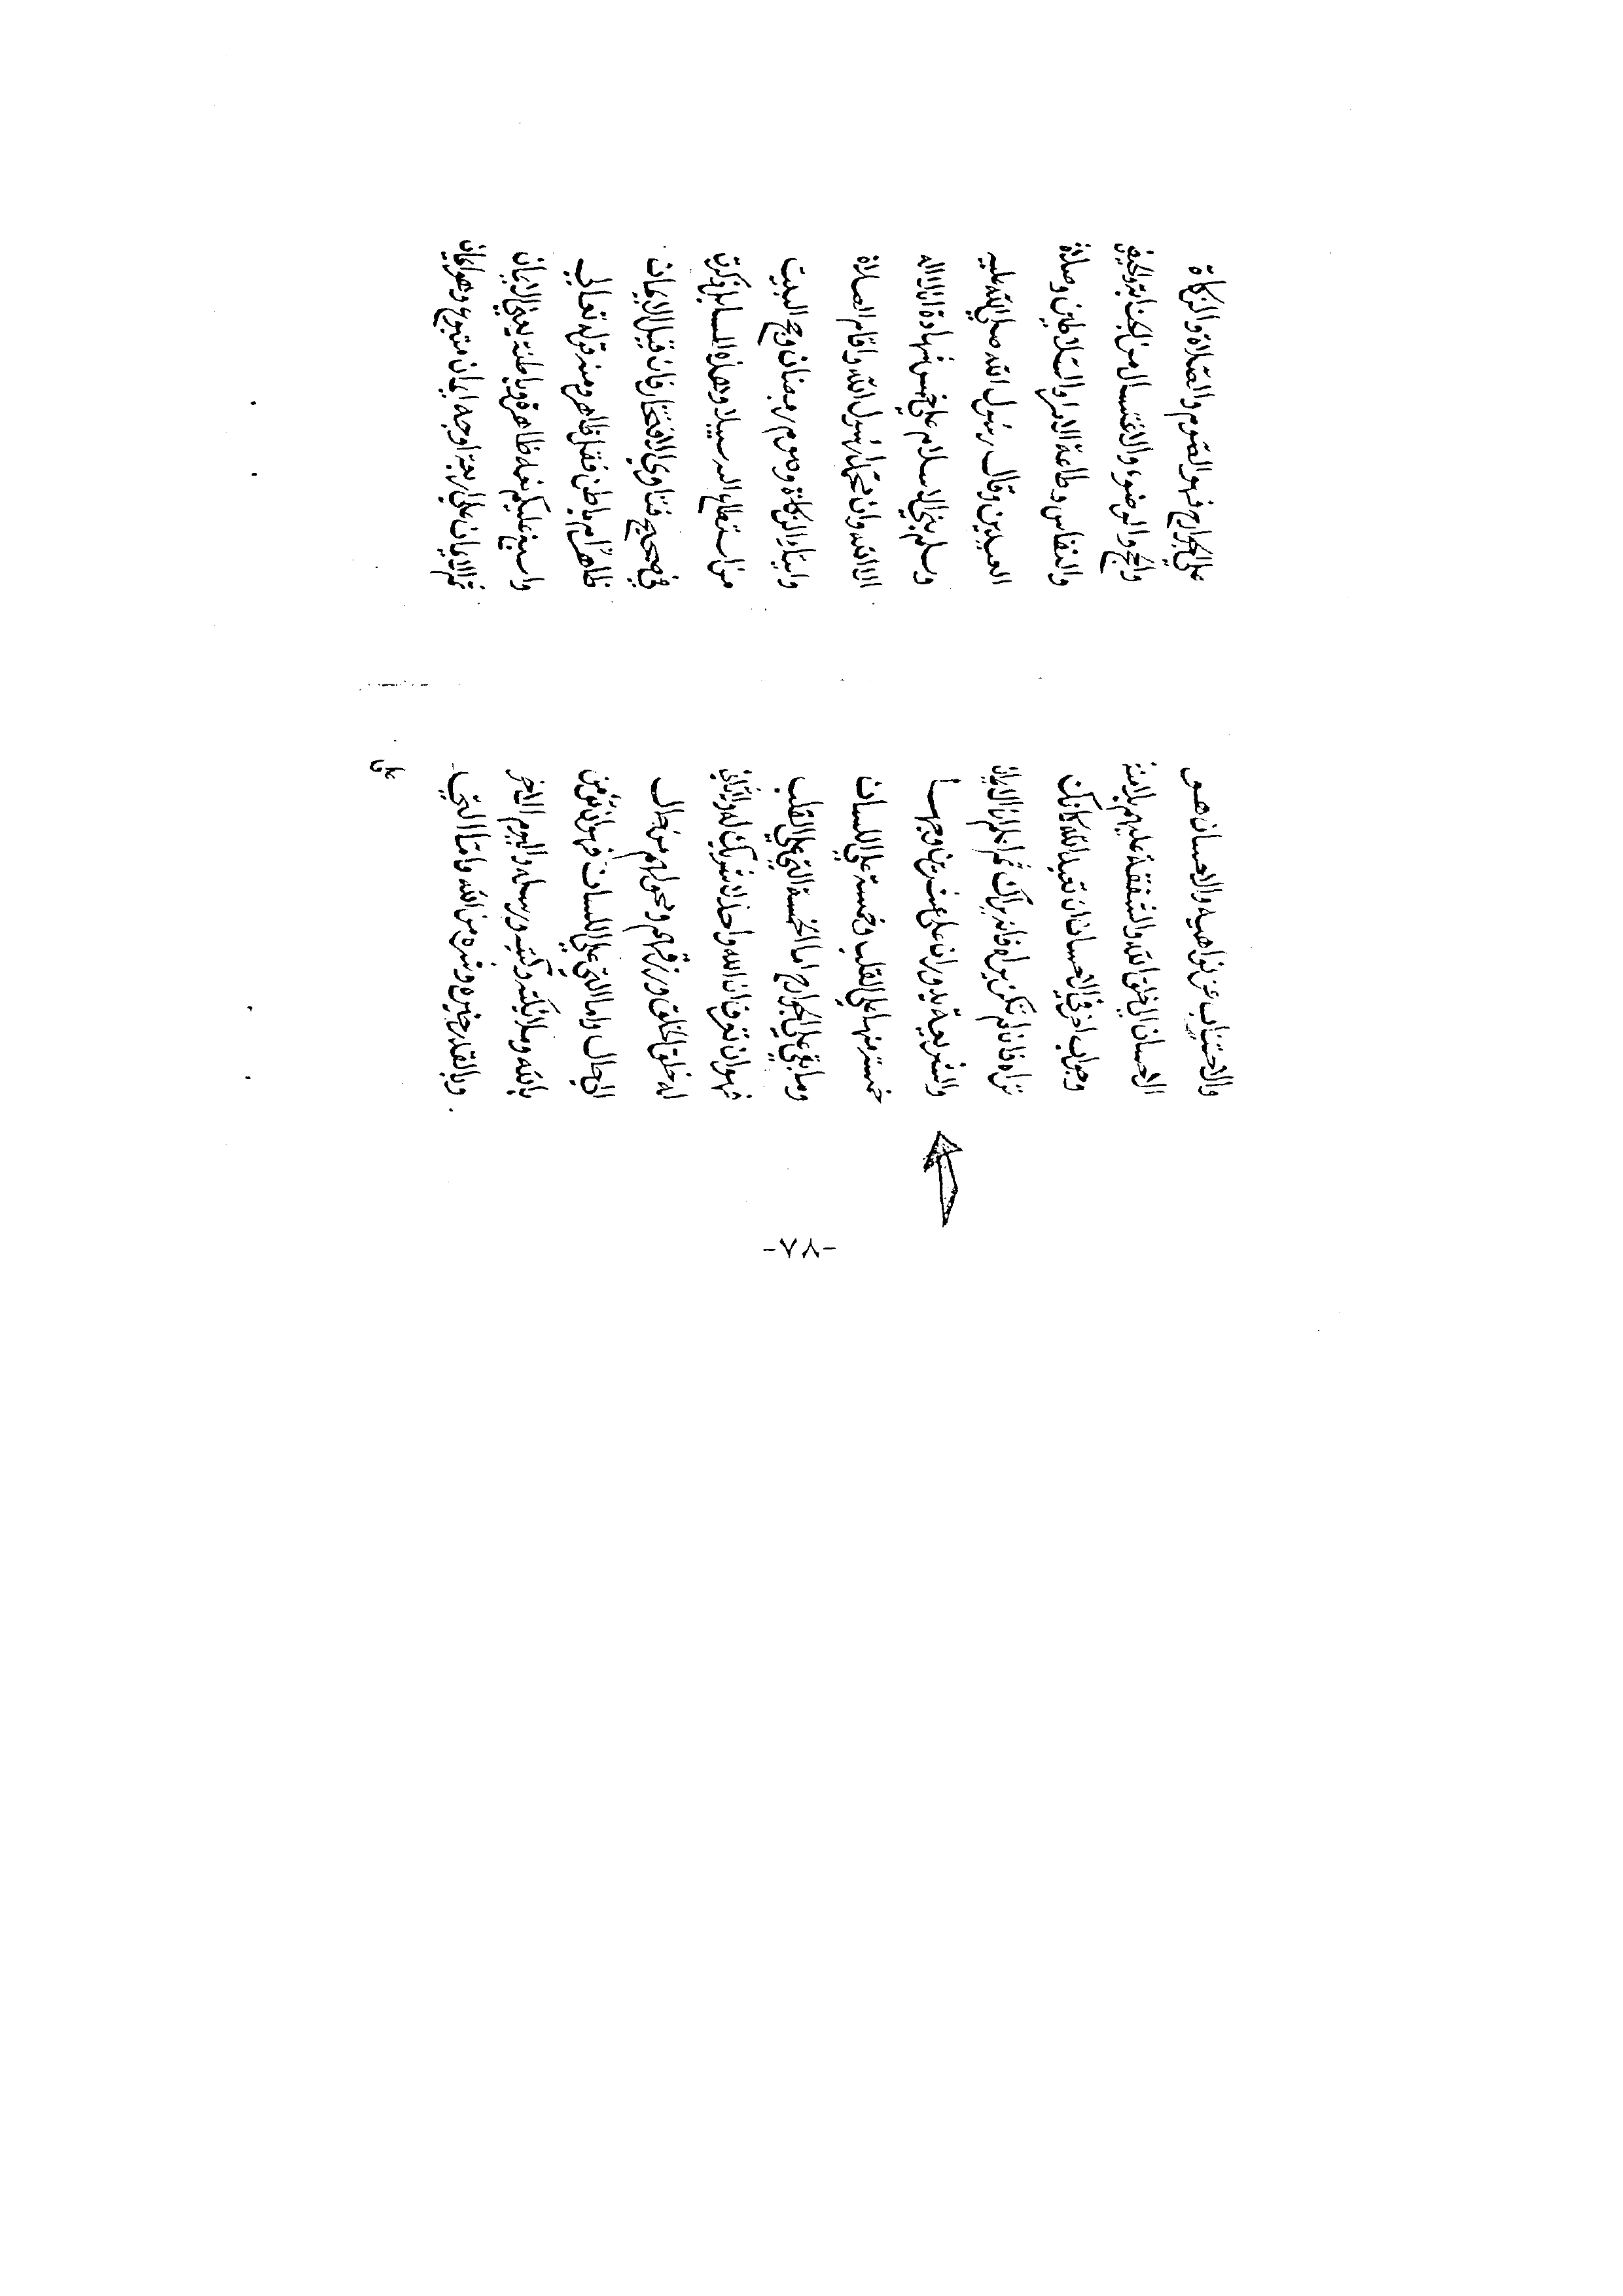 والاجتناب عن نواهيه والاحسان هو
الاحسان الي خلق الله والشفقة عليهم بلا منة
وجواب اخر في الاحسان ان تعبد الله كانك
تراه فان لم تكن تراه فانه يراك ثم اعلم ان الايمان
والشريعة يدوران على عشرين وجها
خمسة منها على القلب وخمسة على اللسان
وما بقي على الجوارح اما الخمسة التي على القلب
فهو ان تعرف ان الله واحد لا شريك له وان
له خلق الخلق ورزقهم ومحولهم من حال
الى حال واما التي على اللسان فهو ان تؤمن
بالله وملائكته وكتبه ورسله واليوم الاخر
وبالقدر خيره وشره من الله واما التي
على
على الجوارح فهو الصوم والصلاة والزكاة
والحج والوضوء والاغتسال من الجنابة والحيض
والنفاس وطاعة الامر والسلاطين وصلاة
العيدين وقال رسول الله صلى الله عليه
وسلم بني الاسلام على خمس شهادة ان لا اله
الا الله وان محمدا رسول الله واقام الصلاة
وايتاء الزكاة وصوم رمضان وحج البيت
من استطاع اليه سبيلا وهذه المسايل ذكرت
في صحيح فتاوي الافتخار فان قيل الايمان
ظاهر ام باطن فقل ظاهر ومنه قوله تعالى
واسبغ عليكم نعمه ظاهرة وباطنة يعني الايمان
ثم الايمان على اربعة اوجه ايمان متبوع وهو ايمان
-٧٨-